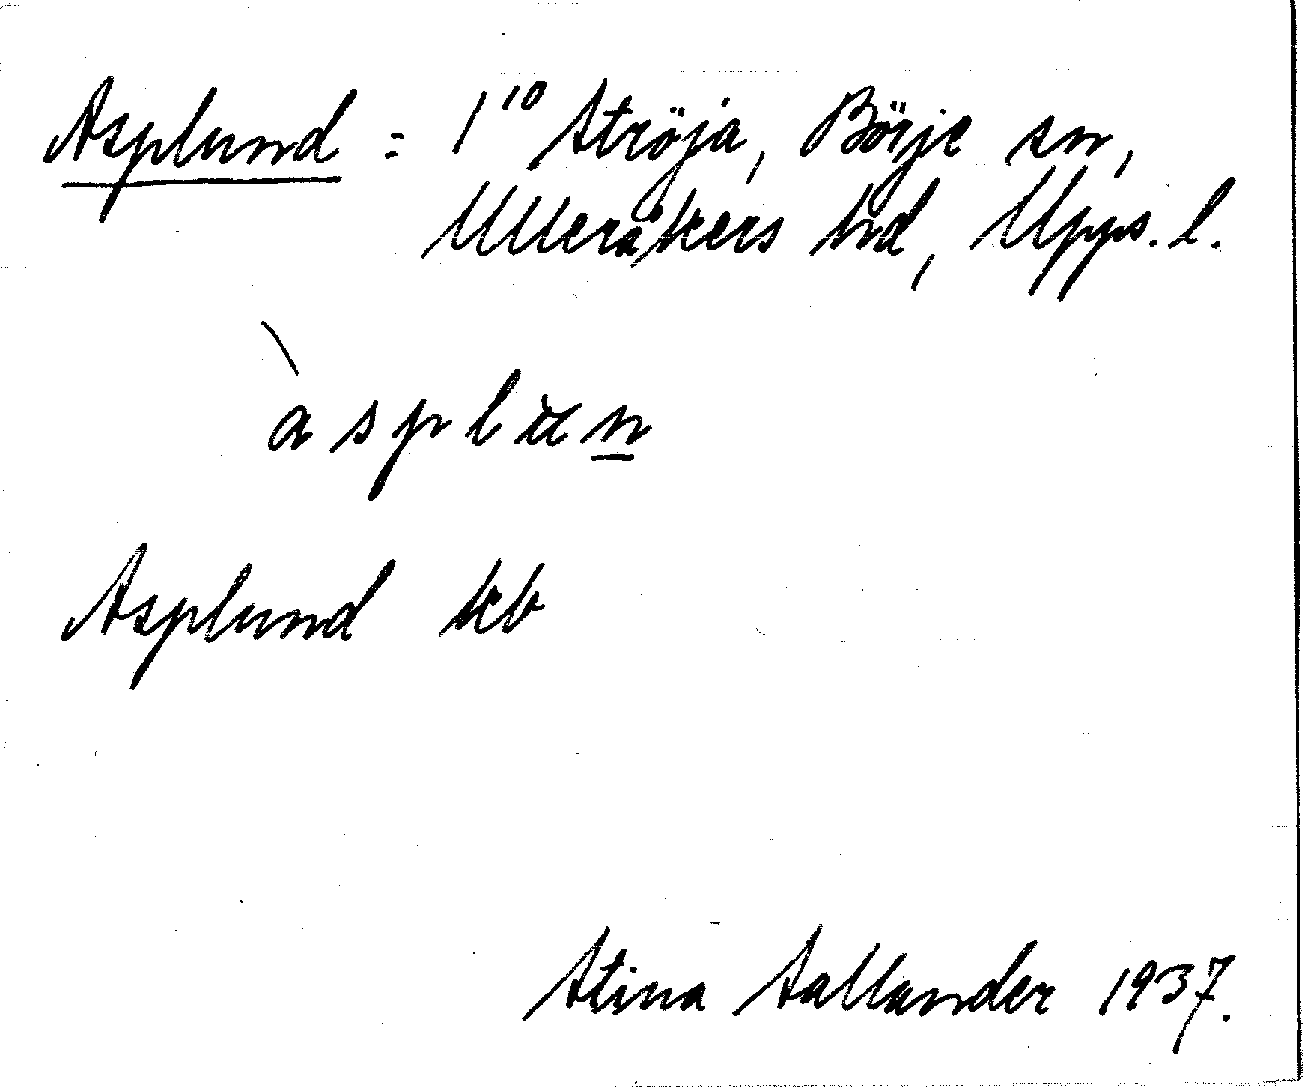 Asplund = 1¹⁰ Ströja, Börje sn,
Ulleråkers hd, Upps. l.
àsplun
Asplund kb
Stina Sallander 1937.